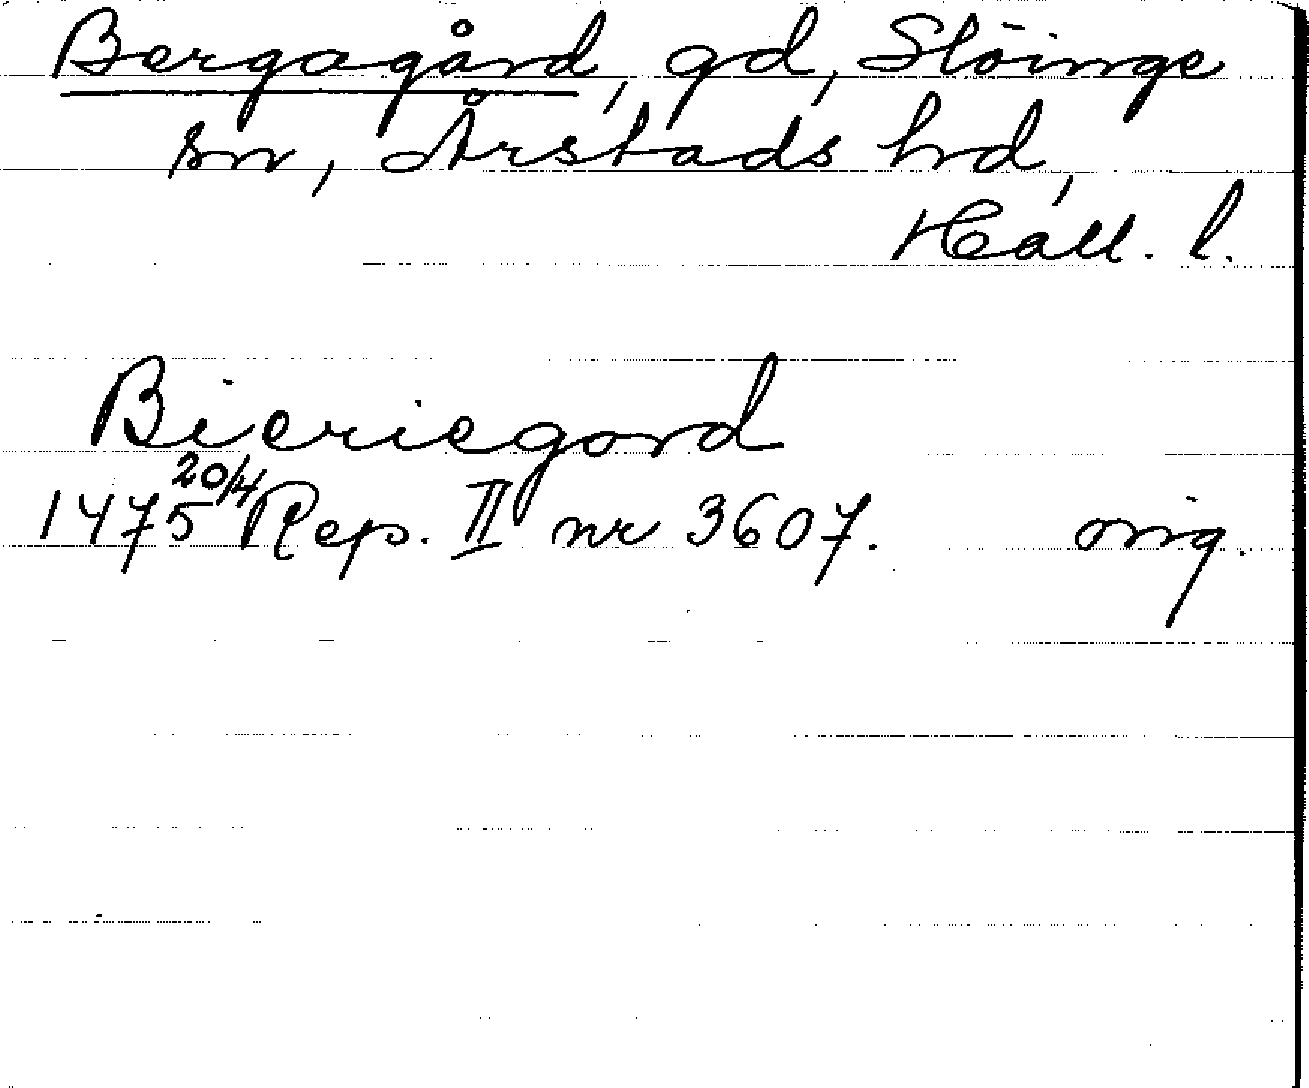 Bergagård, gd, Slöinge
sn, Årstads hd,
Hall. l.
Bieriegord
1475 20/4 Rep. II nr 3607. orig.